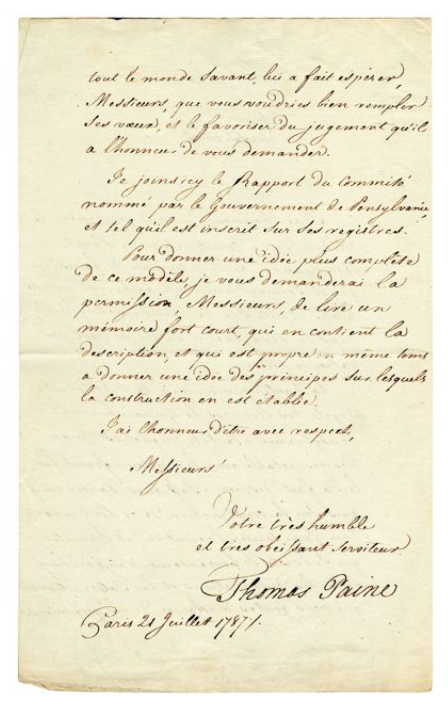 tout le monde savant, lui a fait espérer,
Messieurs, que vous voudries bien remplir
ses vœux, et le favoriser du jugement qu'il
a l'honneur de vous demander.
Je joins icy le Rapport du Committé
nommé par le Gouvernement de Pensylvanie,
et tel qu'il est inscrit sur ses registres.
Pour donner une idée plus complète
de ce modèle, je vous demanderai la
permission, Messieurs, de lire un
mémoire fort court, qui en contient la
description, et qui est propre en même tems
a donner une idée des principes sur lesquels
la construction en est établie.
J'ai l'honneur d'être avec respect,
Messieurs
Votre tres humble
et tres obeissant serviteur
Thomas Paine
Paris 21 Juillet 1787.